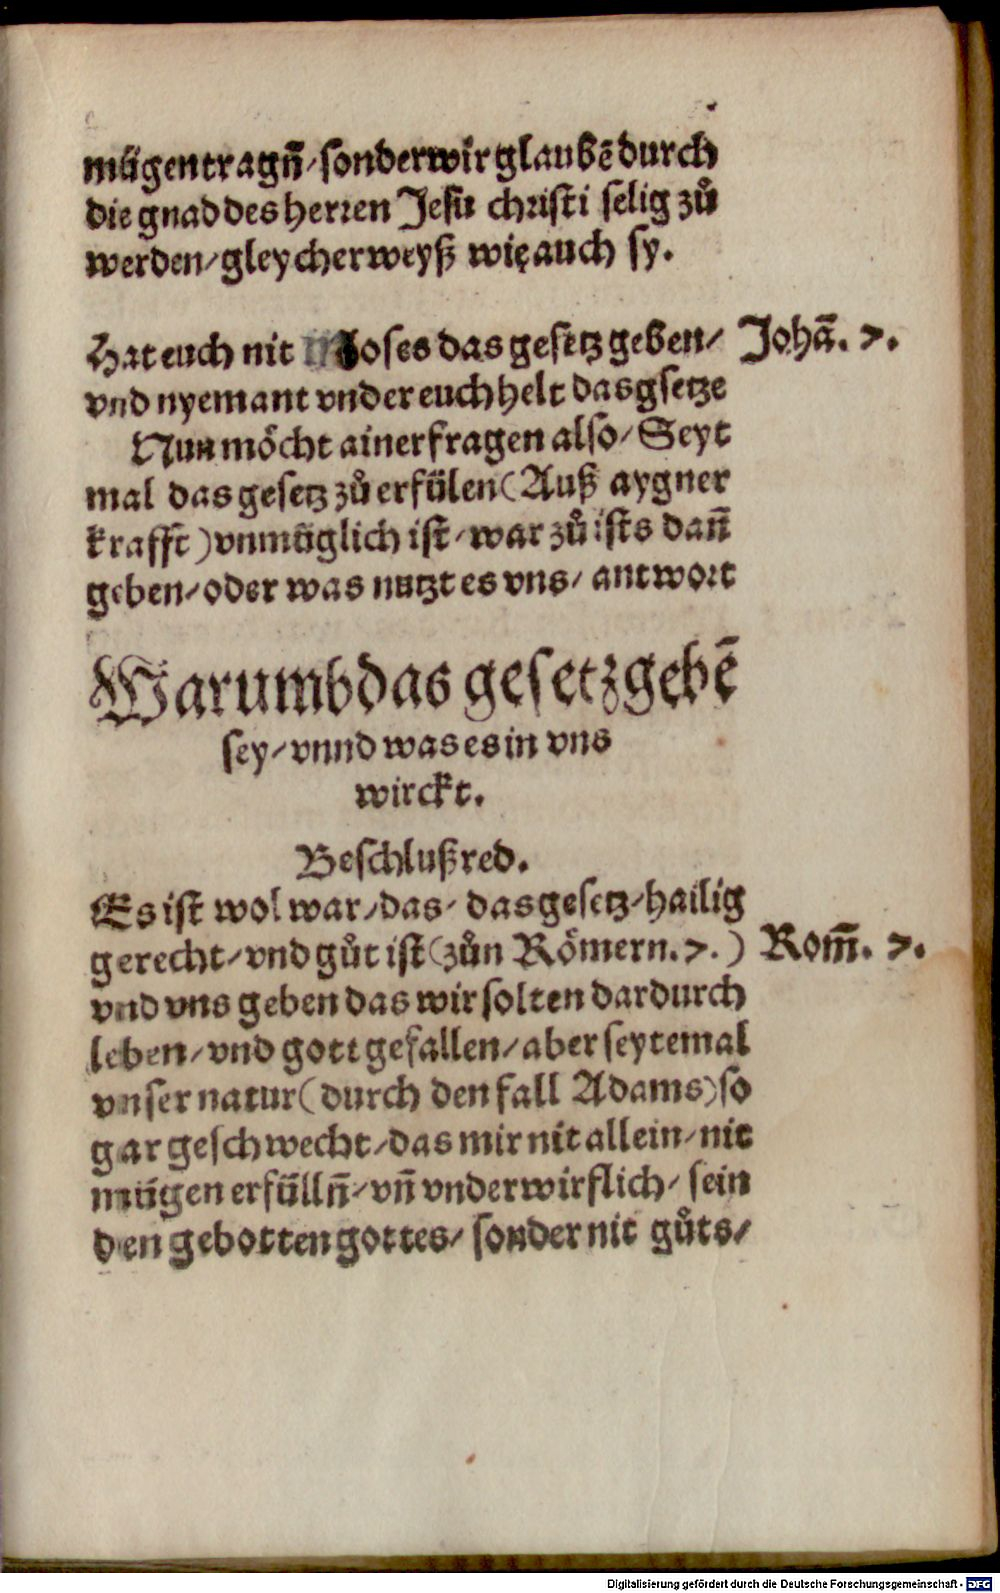 mügen tragñ/sonder wir glaubē durch
die gnad des herren Jesu christi selig zů
werden/gleycherweyß wie auch sy.
Hat euch nit Moses das gesetz geben/ Johā. 7.
vnd nyemant vnder euch helt das gsetze
Nun möcht ainer fragen also/Seyt
mal das gesetz zů erfülen (Auß aygner
krafft) vnmüglich ist/war zů ists dañ
geben/oder was nutzt es vns/antwort
Warumb das gesetz gebē
sey/vnnd was es in vns
wirckt.
Beschlußred.
Es ist wol war/das/das gesetz/hailig
gerecht/vnd gůt ist (zůn Römern. 7.) Rom̄. 7.
vnd vns geben das wir solten dardurch
leben/vnd gott gefallen/aber seytemal
vnser natur (durch den fall Adams) so
gar geschwecht/das mir nit allein/nit
mügen erfüllñ/vñ vnderwirflich/sein
den gebotten gottes/sonder nit gůts/
Digitalisierung gefördert durch die Deutsche Forschungsgemeinschaft - DFG